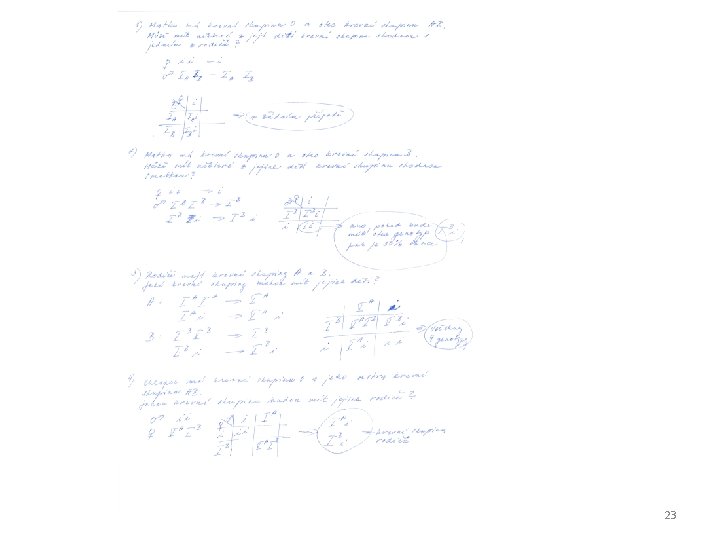 1) Matka má krevní skupinu 0 a otec krevní skupinu AB.
Může mít některé z jejich dětí krevní skupinu shodnou s
jedním z rodičů?
♀ i i → i
♂ I_A I_B → I_A I_B
♀ | i |
I_A | I_A i → v žádném případě
I_B | I_B i
2) Matka má krevní skupinu 0 a otec krevní skupinu B.
Může mít některé z jejich dětí krevní skupinu shodnou
s matkou?
♀ i i → i
♂ I^B I^B → I^B
I^B i → I^B i
i |
I^B | I^B i
i | i i → ano, pokud bude
mít otec genotyp I^B i
pak je 50% šance
3) Rodiče mají krevní skupiny A a B.
Jaké krevní skupiny mohou mít jejich děti?
A: I^A I^A → I^A
I^A i → I^A i
B: I^B I^B → I^B
I^B i → I^B i
I^A | i
I^B | I^A I^B | I^B i → všechny
i | I^A i | i i 4 genotypy
4) má krevní skupinu 0 a jeho sestra krevní
skupinu AB.
Jakou krevní skupinu mohou mít jejich rodiče?
♂ i i
♀ I^A I^B
i | I^A
i | i i
I^B | I^A I^B
→ I^A i
I^B i → krevní skupina
rodičů
23